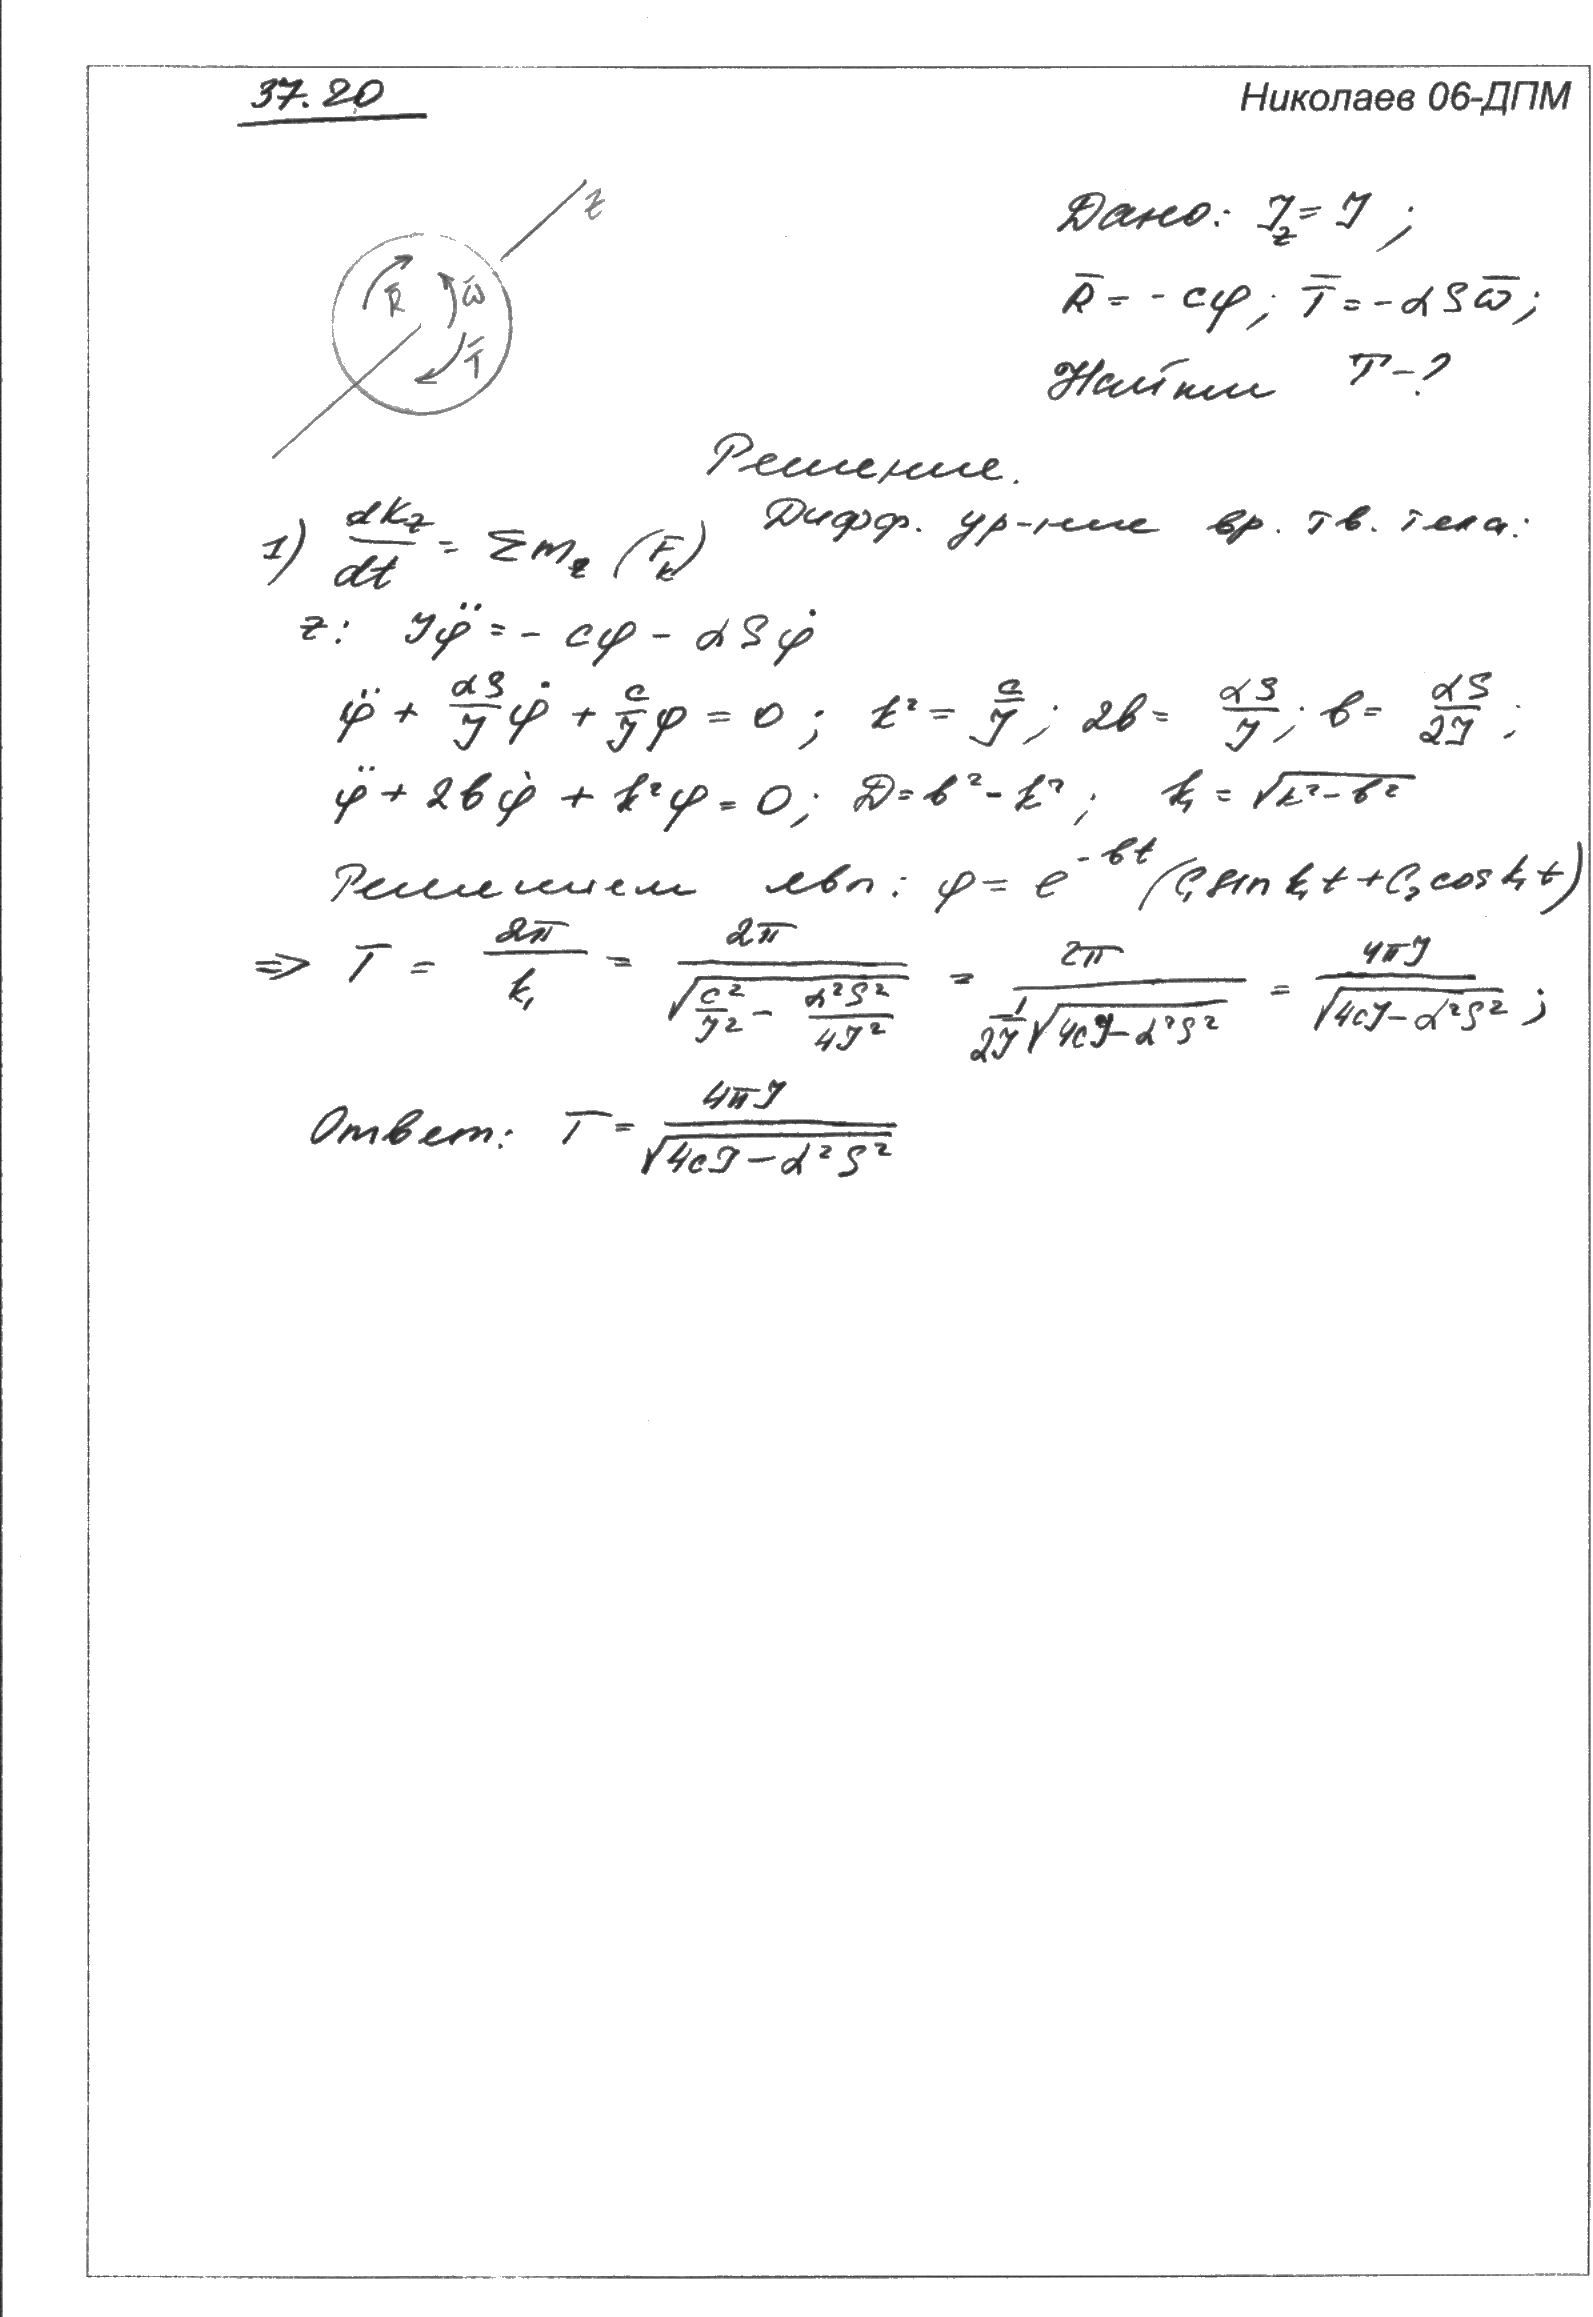 37.20
Николаев 06-ДПМ
z
R̄ ω̄
T̄
Дано: J_z = J ;
R̄ = - cφ ; T̄ = - αSω̄ ;
Найти T - ?
Решение.
1) dK_z/dt = Σm_z (F̄_k) Дифф. ур-ние вр. тв. тела:
z: Jφ̈ = - cφ - αSφ̇
φ̈ + αS/J φ̇ + c/J φ = 0 ; k² = c/J ; 2b = αS/J ; b = αS/2J ;
φ̈ + 2bφ̇ + k²φ = 0 ; D = b² - k² ; k₁ = √(k² - b²)
Решением явл: φ = e^(-bt) (C₁ sin k₁t + C₂ cos k₁t)
⇒ T = 2π/k₁ = 2π/√(c²/J² - α²S²/4J²) = 2π/(1/2J √(4cJ - α²S²)) = 4πJ/√(4cJ - α²S²) ;
Ответ: T = 4πJ/√(4cJ - α²S²)